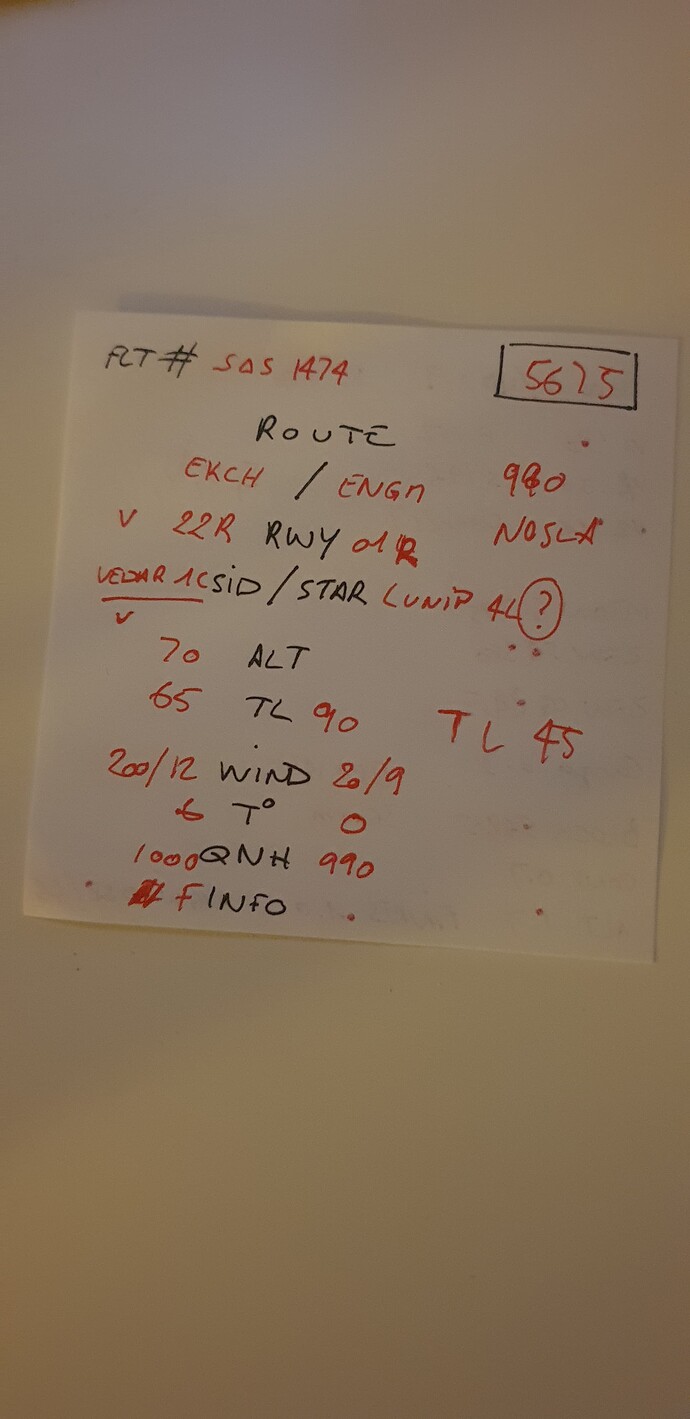 FLT # SAS 1474 5675
ROUTE
EKCH / ENGM 990
V 22R RWY 01R NOSLA
VEDAR 1C SID / STAR LUNIP 4L ?
V
70 ALT
65 TL 90 TL 45
200/12 WIND 20/9
6 T° 0
1000 QNH 990
F INFO